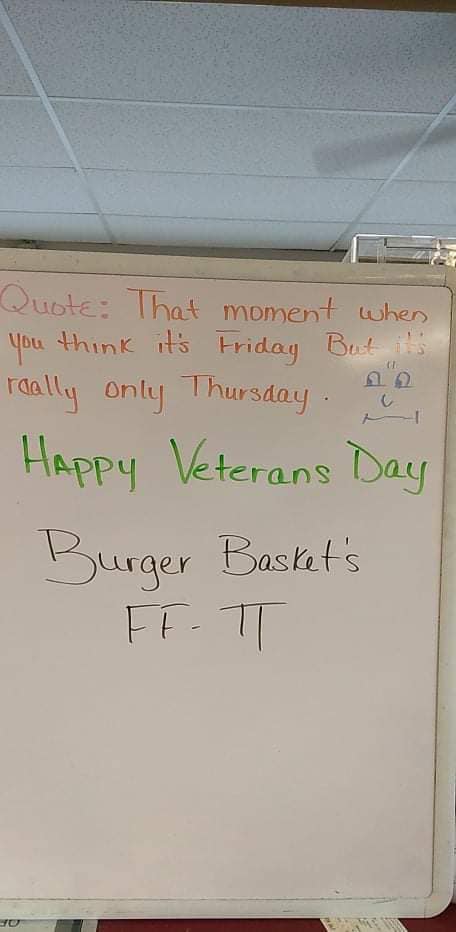 Quote: That moment when
you think it's Friday But it's
really only Thursday.
Happy Veterans Day
Burger Basket's
FF - TT